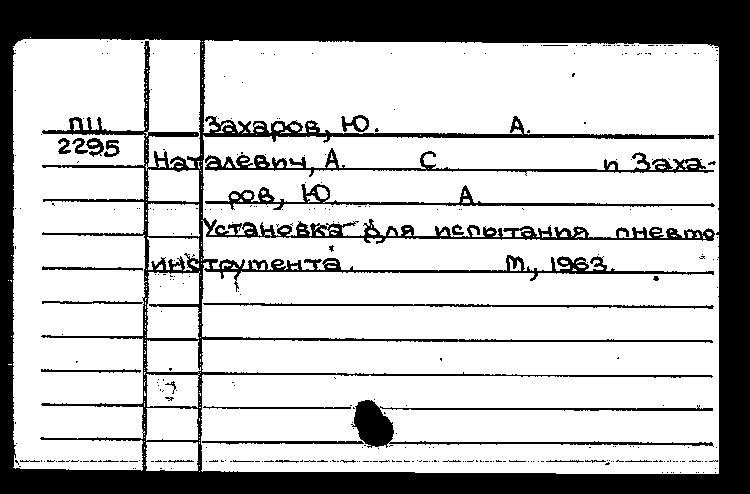 ПЦ Захаров, Ю. А.
2295
Наталевич, А. С. и Заха-
ров, Ю. А.
Установка для испытания пневмо-
инструмента. М., 1963.